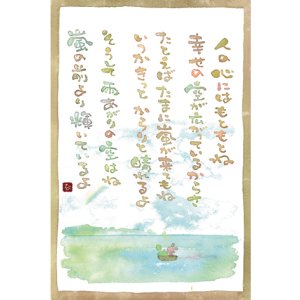 人の心にはもともとね
幸せの空が広がっているからさ
たとえばたまに嵐が来てもね
いつかきっとからりと晴れるよ
そうして雨あがりの空はね
嵐の前より輝いているよ